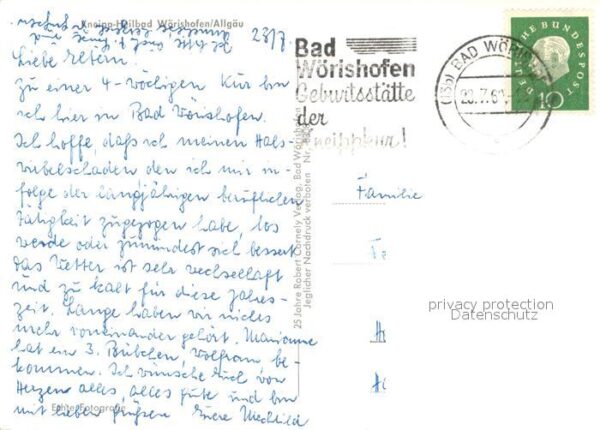 Kneipp-Heilbad Wörishofen/Allgäu
23/7.
Liebe Eltern.
Zu einer 4-wöchigen Kur bin
ich hier in Bad Wörishofen.
Ich hoffe, daß ich meinen Hals-
wirbelschaden den ich mir in-
folge der langjährigen beruflichen
Tätigkeit zugezogen habe, los
werde oder zumindest sich bessert
das Wetter ist sehr wechselhaft
und zu kalt für diese Jahres-
zeit. Lange haben wir nichts
mehr voneinander gehört. Marianne
hat ein 3. Bübchen, Wolfram be-
kommen. Ich wünsche Euch von
Herzen alles, alles gute und bin
mit lieben Grüßen Eure Mechtild
Echte Fotografie
25 Jahre Robert Cornely Verlag, Bad Wörishofen
Jeglicher Nachdruck verboten Nr.
Bad
Wörishofen
Geburtsstätte
der
Kneippkur!
BAD WÖRISH
DEUTSCHE BUNDESPOST
10
Familie
privacy protection
Datenschutz